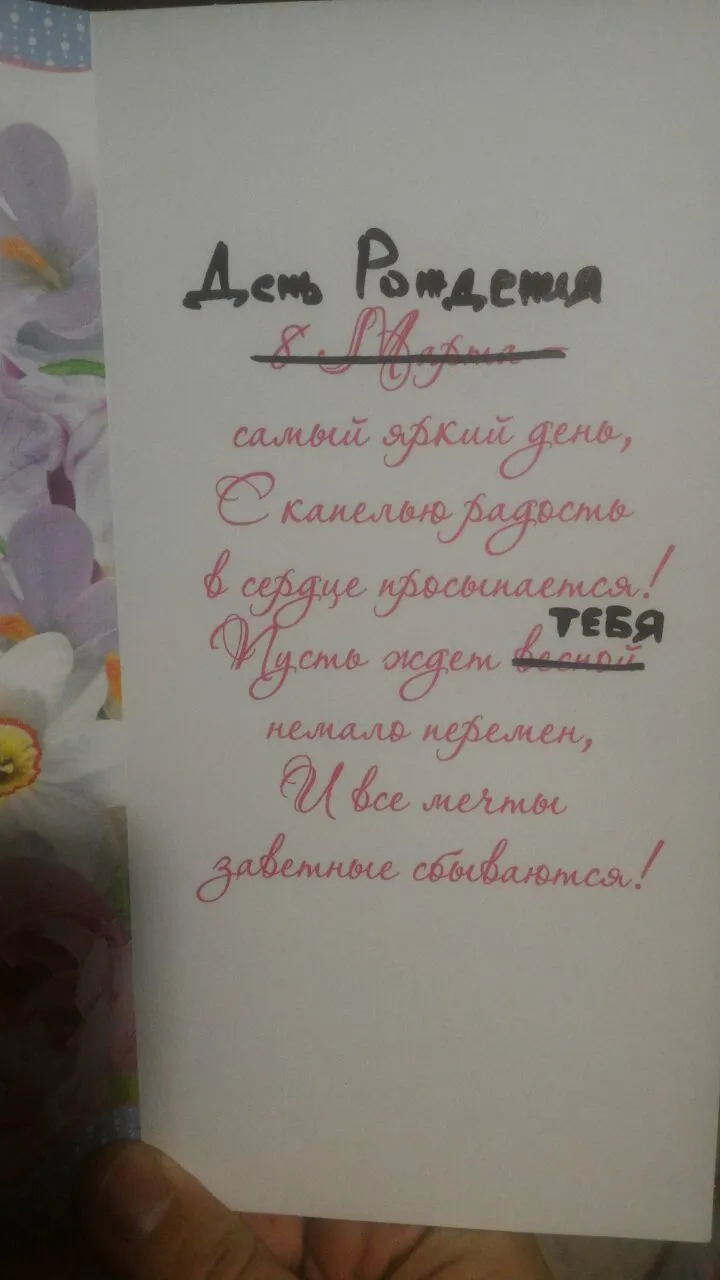 День Рождения
8 Марта –
самый яркий день,
С капелью радость
в сердце просыпается!
ТЕБЯ
Пусть ждет весной
немало перемен,
И все мечты
заветные сбываются!